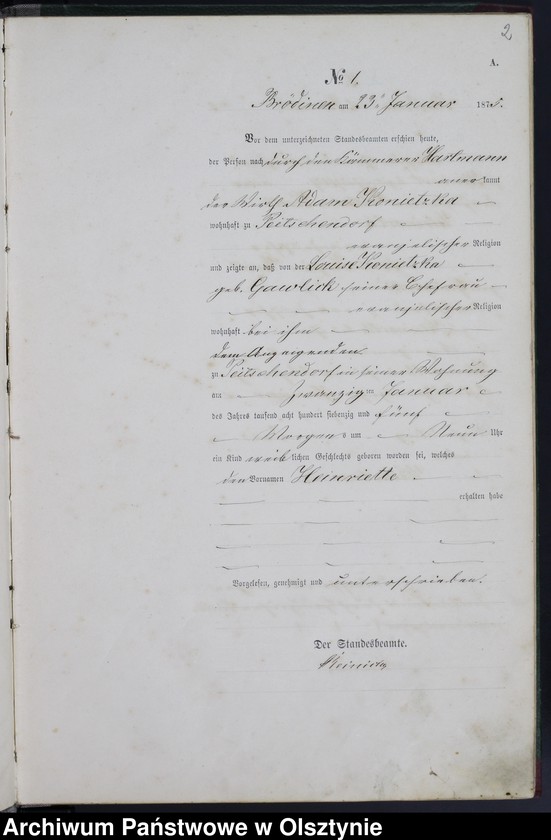 2
A.
No 1.
Brödinen am 23t Januar 1875.
Vor dem unterzeichneten Standesbeamten erschien heute,
der Person nach durch den Kämmerer Hartmann
anerkannt
der Wirth Adam Konietzka
wohnhaft zu Peitschendorf
evangelischer Religion
und zeigte an, daß von der Louise Konietzka
geb. Gawlick seiner Ehefrau
evangelischer Religion
wohnhaft bei ihm
dem Anzeigenden
zu Peitschendorf in seiner Wohnung
am zwanzigten Januar
des Jahres tausend acht hundert siebenzig und fünf
Morgens um Neun Uhr
ein Kind weiblichen Geschlechts geboren worden sei, welches
den Vornamen Heinriette
erhalten habe
Vorgelesen, genehmigt und unterschrieben.
Der Standesbeamte.
Archiwum Państwowe w Olsztynie